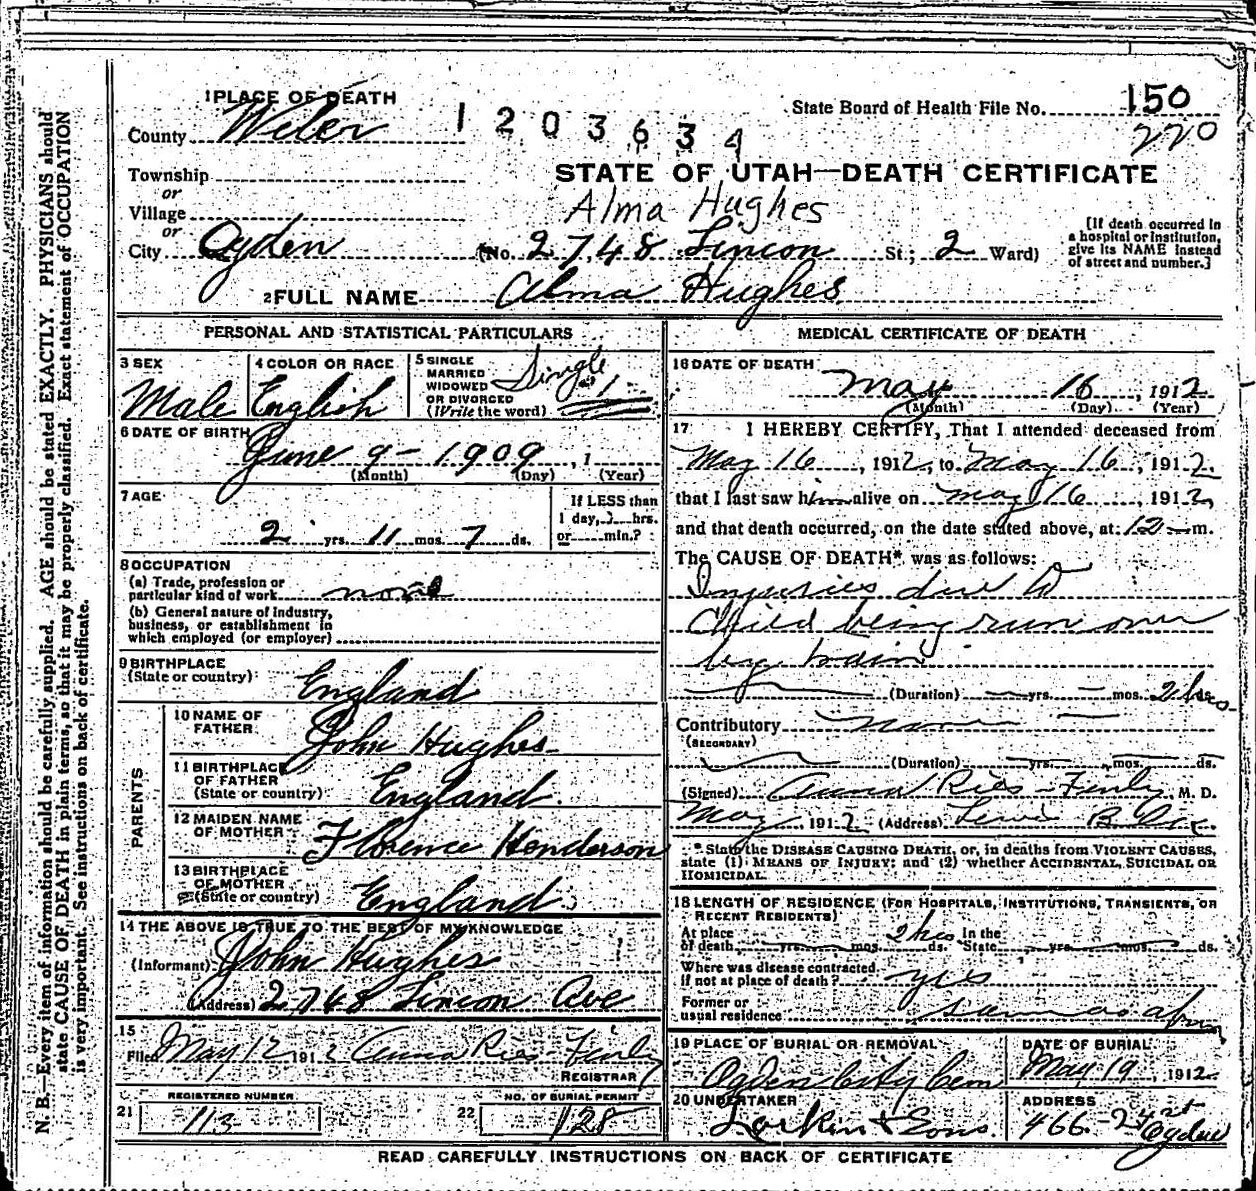 1 PLACE OF DEATH
State Board of Health File No. 150
County Weber
1203634
220
STATE OF UTAH—DEATH CERTIFICATE
Township
or
Village
Alma Hughes
or
City Ogden (No. 2748 Lincon St.; 2 Ward)
[If death occurred in a hospital or institution, give its NAME instead of street and number.]
2 FULL NAME Alma Hughes
PERSONAL AND STATISTICAL PARTICULARS
3 SEX
Male
4 COLOR OR RACE
English
5 SINGLE
MARRIED
WIDOWED
OR DIVORCED
(Write the word)
Single
6 DATE OF BIRTH
June 9 - 1909, 1
(Month) (Day) (Year)
7 AGE
2 yrs. 11 mos. 7 ds.
If LESS than
1 day, hrs.
or min.?
8 OCCUPATION
(a) Trade, profession or
particular kind of work none
(b) General nature of industry,
business, or establishment in
which employed (or employer)
9 BIRTHPLACE
(State or country)
England
PARENTS
10 NAME OF
FATHER
John Hughes
11 BIRTHPLACE
OF FATHER
(State or country)
England
12 MAIDEN NAME
OF MOTHER
Florence Henderson
13 BIRTHPLACE
OF MOTHER
(State or country)
England
14 THE ABOVE IS TRUE TO THE BEST OF MY KNOWLEDGE
(Informant) John Hughes
(Address) 2748 Lincon Ave
15
Filed May 12 1912 Anna Ries-Finly
REGISTRAR
REGISTERED NUMBER
21 113
NO. OF BURIAL PERMIT
22 128
MEDICAL CERTIFICATE OF DEATH
16 DATE OF DEATH
May 16, 1912
(Month) (Day) (Year)
17 I HEREBY CERTIFY, That I attended deceased from
May 16, 1912, to May 16, 1912.
that I last saw him alive on May 16, 1912,
and that death occurred, on the date stated above, at 12 m.
The CAUSE OF DEATH* was as follows:
Injuries due to
child being run over
by train
(Duration) yrs. mos. 2 hrs ds.
Contributory none
(SECONDARY)
(Duration) yrs. mos. ds.
(Signed) Anna Ries-Finly, M. D.
May, 1912 (Address)
* State the DISEASE CAUSING DEATH, or, in deaths from VIOLENT CAUSES,
state (1) MEANS OF INJURY; and (2) whether ACCIDENTAL, SUICIDAL OR
HOMICIDAL.
18 LENGTH OF RESIDENCE (FOR HOSPITALS, INSTITUTIONS, TRANSIENTS, OR
RECENT RESIDENTS)
At place
of death yrs. mos. 2 hrs ds. In the
State yrs. mos. ds.
Where was disease contracted,
if not at place of death? yes
Former or
usual residence
19 PLACE OF BURIAL OR REMOVAL
Ogden City Cem
DATE OF BURIAL
May 19, 1912
20 UNDERTAKER
Larkin & Sons.
ADDRESS
466-24 st
Ogden
READ CAREFULLY INSTRUCTIONS ON BACK OF CERTIFICATE
N. B.—Every item of information should be carefully supplied. AGE should be stated EXACTLY. PHYSICIANS should
state CAUSE OF DEATH in plain terms, so that it may be properly classified. Exact statement of OCCUPATION
is very important. See instructions on back of certificate.